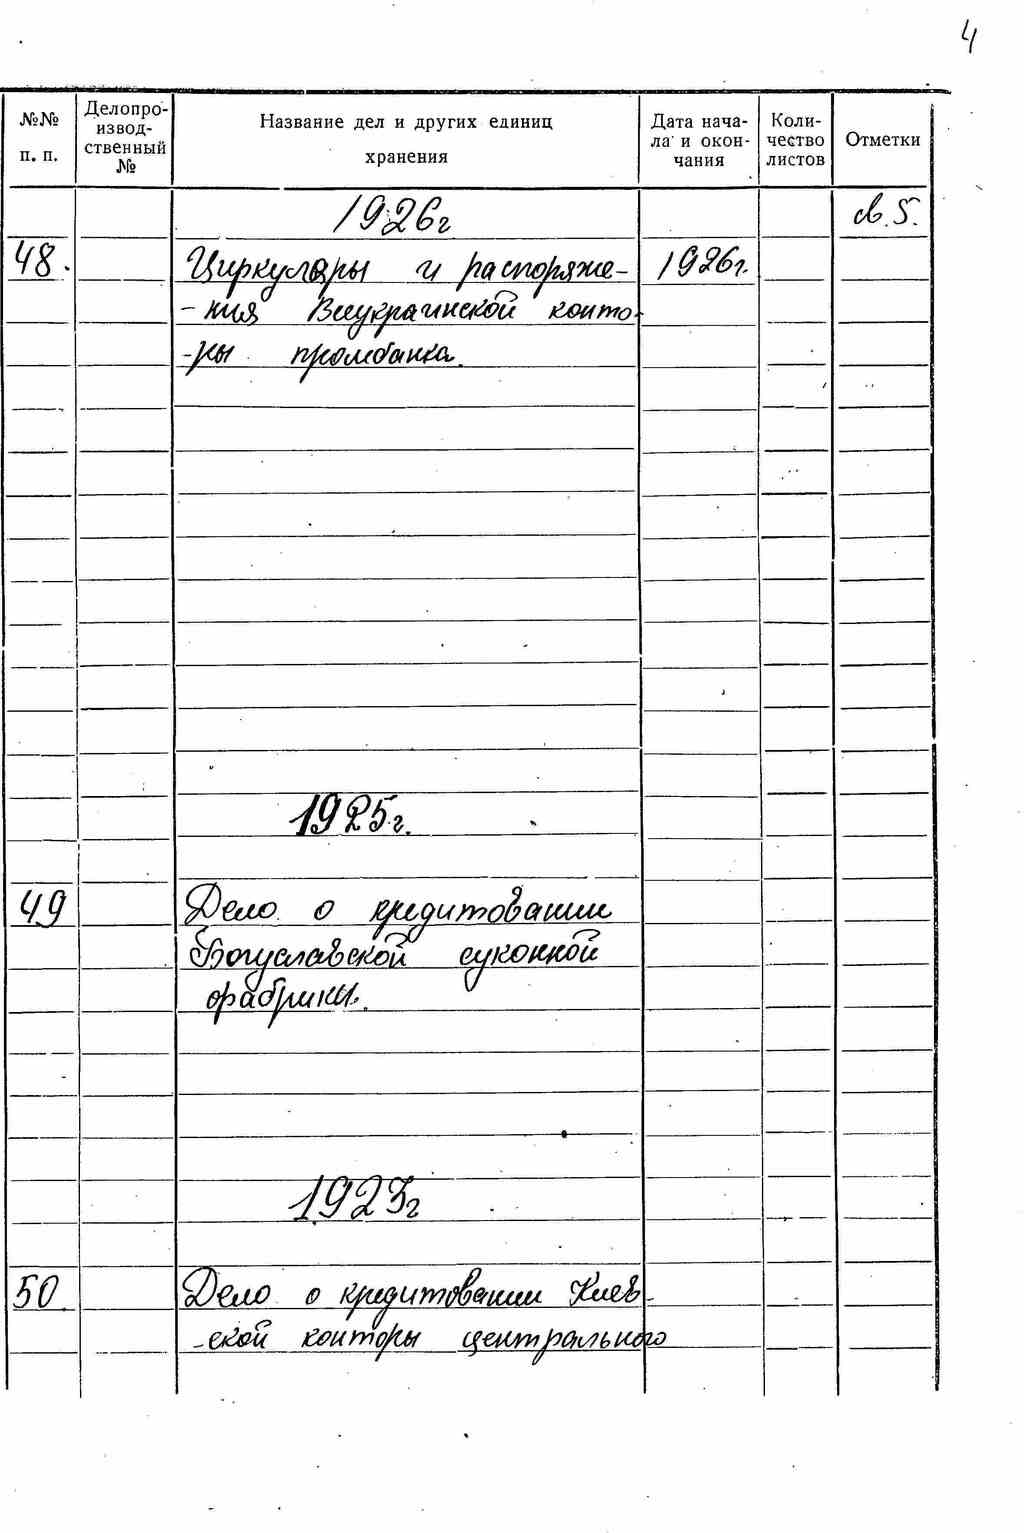 4
№№ п. п.
Делопро-
извод-
ственный
№
Название дел и других единиц
хранения
Дата нача-
ла и окон-
чания
Коли-
чество
листов
Отметки
1926г св. 5.
48. Циркуляры и распоряже- 1926г.
- ния Всеукраинской конто-
-ры промбанка.
1925г.
49 Дело о кредитовании
Богуславской суконной
фабрики.
1923г
50 Дело о кредитовании Киев-
-ской конторы центрального